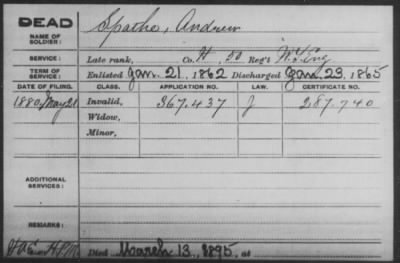 DEAD
Spathe, Andrew
NAME OF SOLDIER:
SERVICE: Late rank, Co. H, 50 Reg't N.Y. Eng
TERM OF SERVICE: Enlisted Jan. 21, 1862 Discharged Jan. 23, 1865
DATE OF FILING. CLASS. APPLICATION NO. LAW. CERTIFICATE NO.
1880, May 21 Invalid, 367.437 J 287.740
Widow,
Minor,
ADDITIONAL SERVICES:
REMARKS:
Died March 13, 1895, at